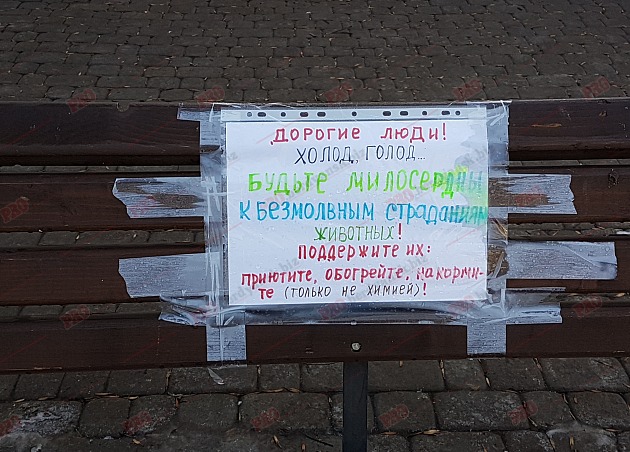 ДОРОГИЕ ЛЮДИ!
ХОЛОД, ГОЛОД...
БУДЬТЕ МИЛОСЕРДНЫ
К БЕЗМОЛВНЫМ СТРАДАНИЯМ
ЖИВОТНЫХ!
ПОДДЕРЖИТЕ ИХ:
ПРИЮТИТЕ, ОБОГРЕЙТЕ, НАКОРМИ-
ТЕ (ТОЛЬКО НЕ ХИМИЕЙ)!